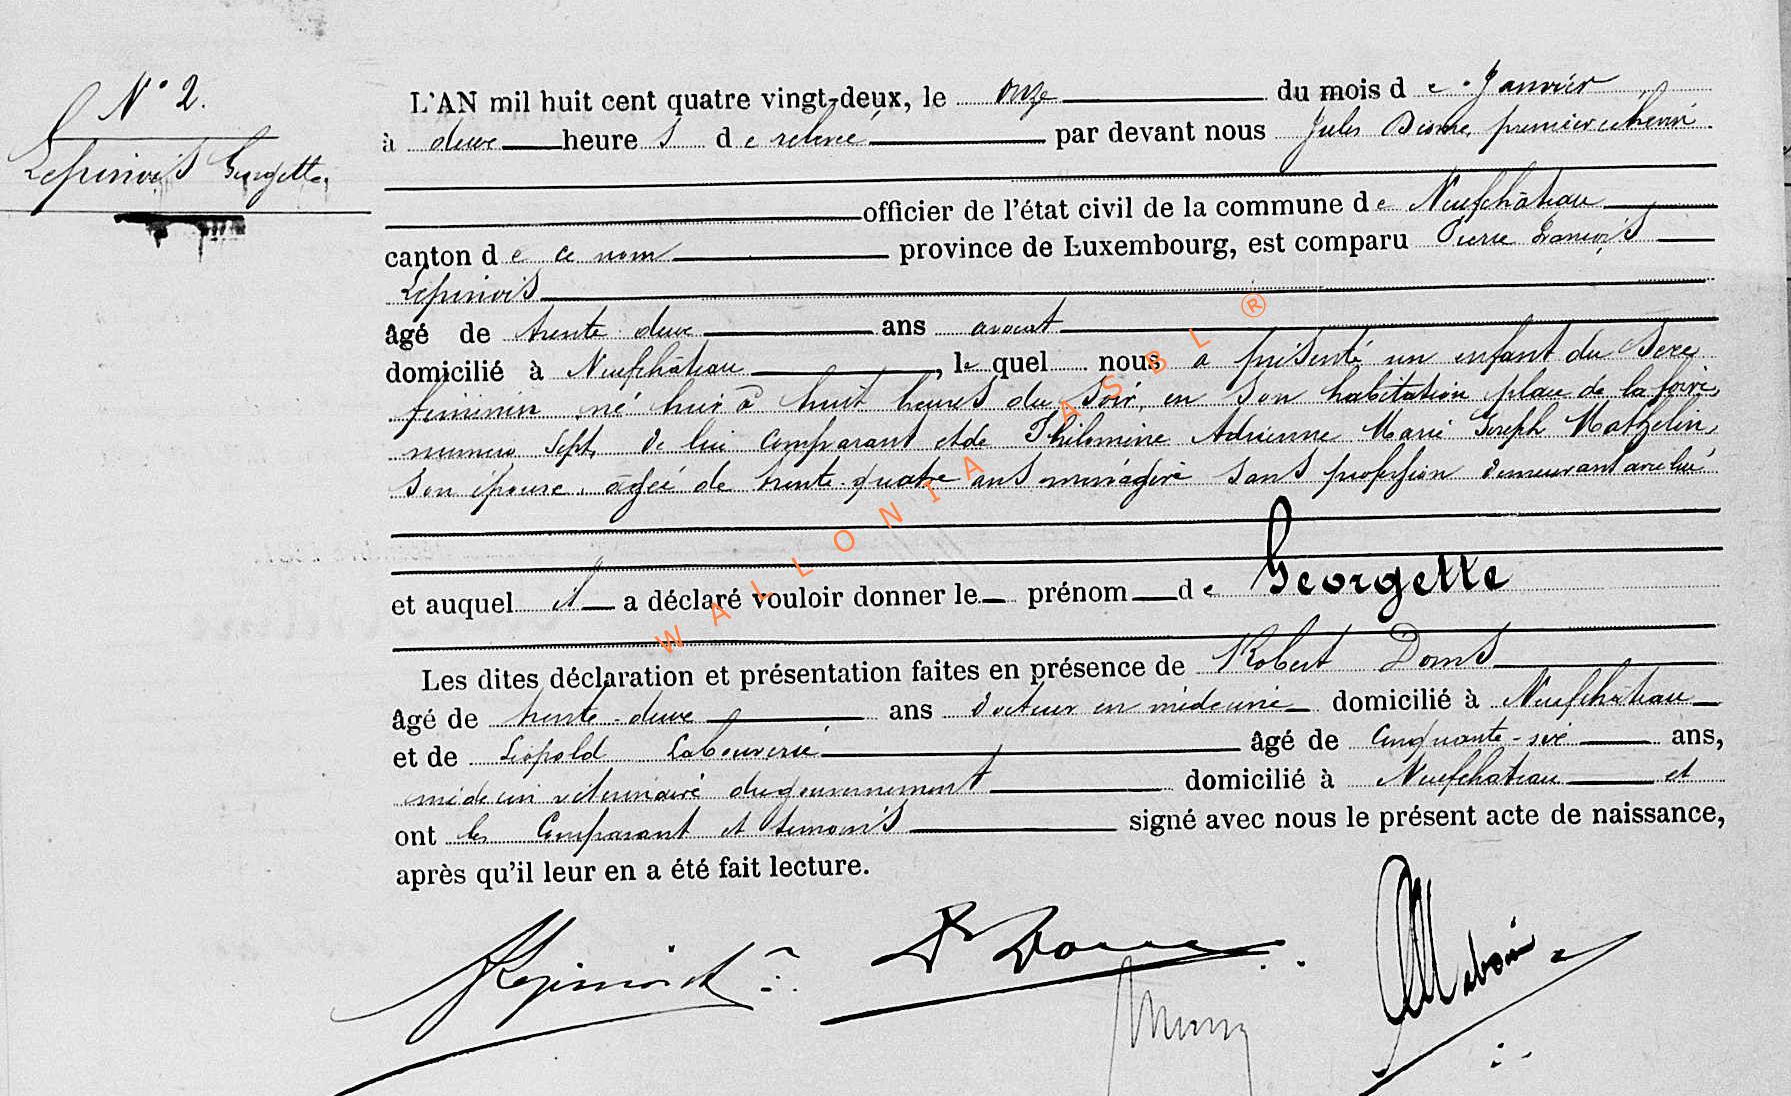 N° 2.
Lepinois Georgette
L'AN mil huit cent quatre vingt-deux, le onze du mois de Janvier
à deux heures de relevée par devant nous Jules premier échevin
officier de l'état civil de la commune de Neufchâteau
canton de ce nom province de Luxembourg, est comparu Pierre François
Lepinois
âgé de trente deux ans avocat
domicilié à Neufchâteau, lequel nous a présenté un enfant du sexe
feminin né hier à huit heures du soir, en son habitation place de la foire
numero sept, de lui comparant et de Philomène Adrienne Marie Joseph Mathelin,
son épouse, agée de trente-quatre ans, menagère sans profession demeurant avec lui
et auquel il a déclaré vouloir donner le prénom de Georgette
Les dites déclaration et présentation faites en présence de Robert Doms
âgé de trente-deux ans docteur en médecine domicilié à Neufchâteau
et de Léopold Labouverie âgé de Cinquante-six ans,
médecin vétérinaire du gouvernement domicilié à Neufchateau et
ont les Comparant et temoins signé avec nous le présent acte de naissance,
après qu'il leur en a été fait lecture.
WALLONIA ASBL ®